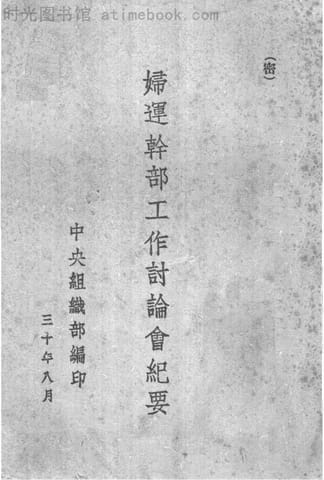 时光图书馆 - atimebook.com
（密）
婦運幹部工作討論會紀要
中央組織部編印
三十年八月